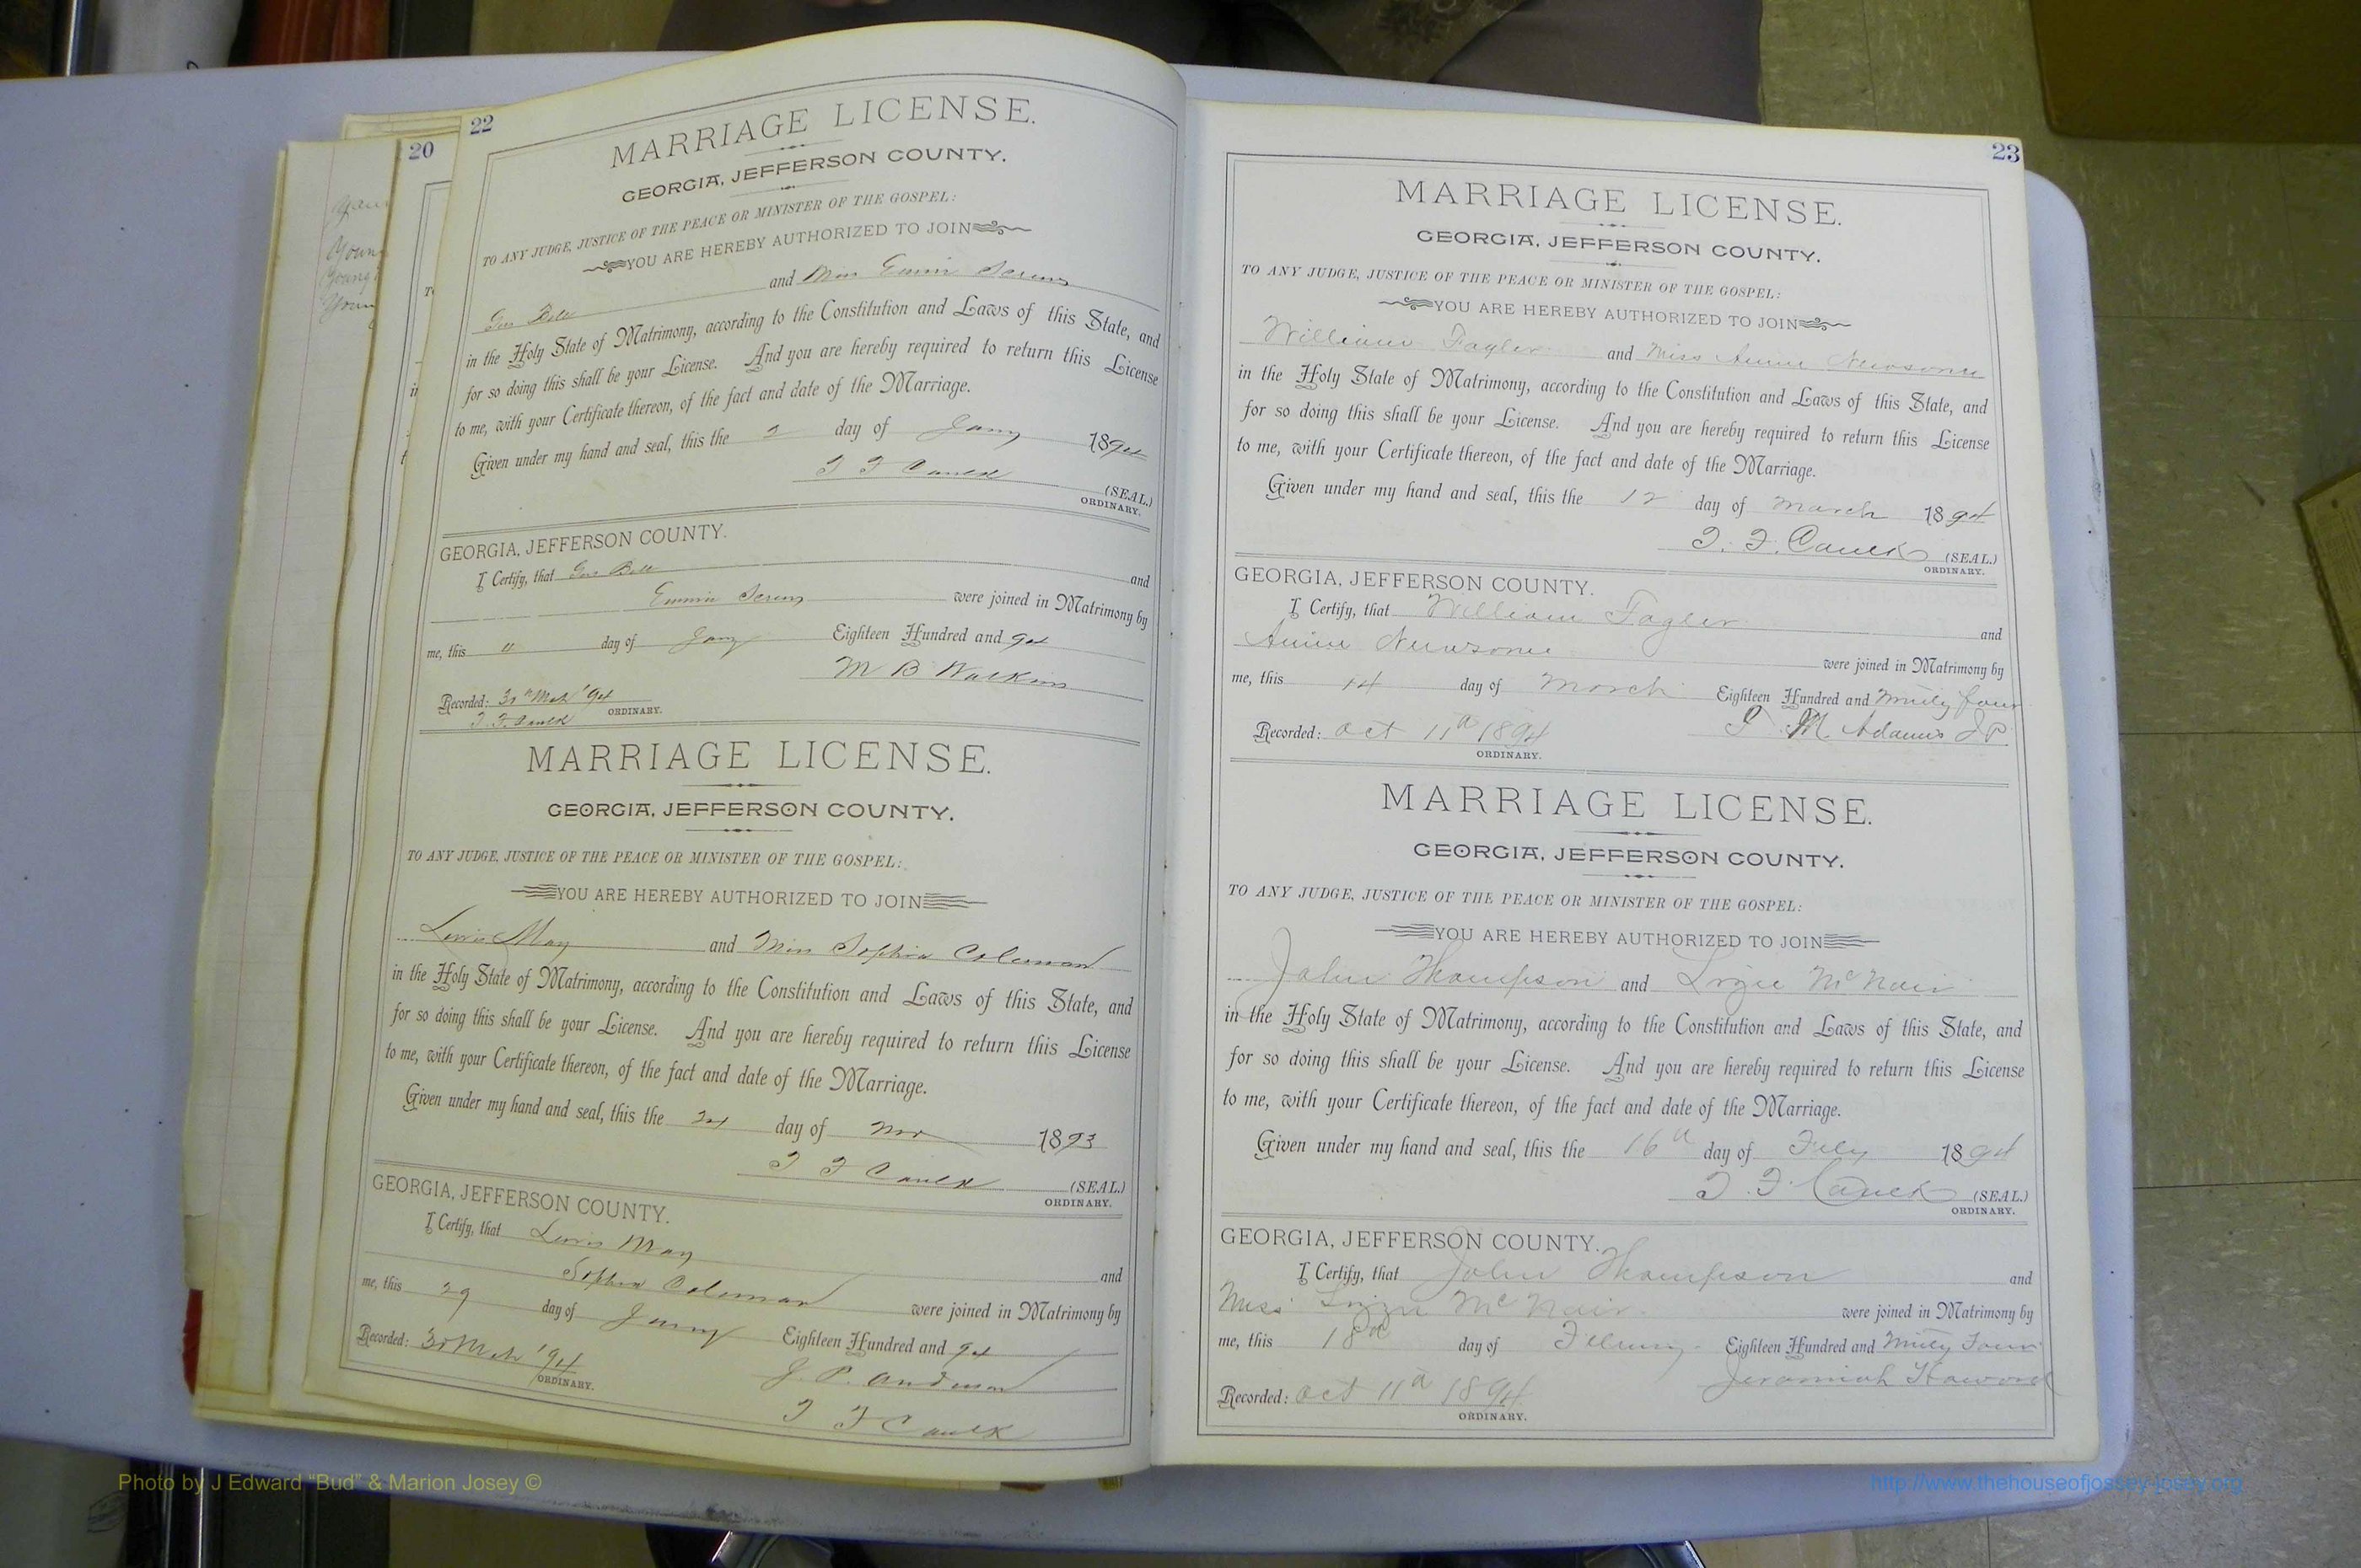 22
MARRIAGE LICENSE.
GEORGIA, JEFFERSON COUNTY.
TO ANY JUDGE, JUSTICE OF THE PEACE OR MINISTER OF THE GOSPEL:
YOU ARE HEREBY AUTHORIZED TO JOIN
Gus Bell and Miss
in the Holy State of Matrimony, according to the Constitution and Laws of this State, and
for so doing this shall be your License. And you are hereby required to return this License
to me, with your Certificate thereon, of the fact and date of the Marriage.
Given under my hand and seal, this the 2 day of Jany 1894
T F Caulk (SEAL.)
ORDINARY.
GEORGIA, JEFFERSON COUNTY.
I Certify, that Gus Bell and
were joined in Matrimony by
me, this day of Jany Eighteen Hundred and 94
M B Watkins
Recorded: 30th Mch '94
T. F. Caulk ORDINARY.
MARRIAGE LICENSE.
GEORGIA, JEFFERSON COUNTY.
TO ANY JUDGE, JUSTICE OF THE PEACE OR MINISTER OF THE GOSPEL:
YOU ARE HEREBY AUTHORIZED TO JOIN
Lewis May and Miss Sophia Coleman
in the Holy State of Matrimony, according to the Constitution and Laws of this State, and
for so doing this shall be your License. And you are hereby required to return this License
to me, with your Certificate thereon, of the fact and date of the Marriage.
Given under my hand and seal, this the day of Nov 1893
T F Caulk (SEAL.)
ORDINARY.
GEORGIA, JEFFERSON COUNTY.
I Certify, that Lewis May and
Sophia Coleman were joined in Matrimony by
me, this 29 day of Jany Eighteen Hundred and 94
J. P. Anderson
Recorded: 30 Mch '94
ORDINARY.
T F Caulk
20
23
MARRIAGE LICENSE.
GEORGIA, JEFFERSON COUNTY.
TO ANY JUDGE, JUSTICE OF THE PEACE OR MINISTER OF THE GOSPEL:
YOU ARE HEREBY AUTHORIZED TO JOIN
William Fagler and Miss Annie Newsome
in the Holy State of Matrimony, according to the Constitution and Laws of this State, and
for so doing this shall be your License. And you are hereby required to return this License
to me, with your Certificate thereon, of the fact and date of the Marriage.
Given under my hand and seal, this the 12 day of March 1894
T. F. Caulk (SEAL.)
ORDINARY.
GEORGIA, JEFFERSON COUNTY.
I Certify, that William Fagler and
Annie Newsome were joined in Matrimony by
me, this 14 day of March Eighteen Hundred and Ninty four
M. Adams J P
Recorded: Oct 11th 1894
ORDINARY.
MARRIAGE LICENSE.
GEORGIA, JEFFERSON COUNTY.
TO ANY JUDGE, JUSTICE OF THE PEACE OR MINISTER OF THE GOSPEL:
YOU ARE HEREBY AUTHORIZED TO JOIN
John Thompson and Lizzie McNair
in the Holy State of Matrimony, according to the Constitution and Laws of this State, and
for so doing this shall be your License. And you are hereby required to return this License
to me, with your Certificate thereon, of the fact and date of the Marriage.
Given under my hand and seal, this the 16th day of Feby 1894
T. F. Caulk (SEAL.)
ORDINARY.
GEORGIA, JEFFERSON COUNTY.
I Certify, that John Thompson and
Miss Lizzie McNair were joined in Matrimony by
me, this 18th day of Eighteen Hundred and Ninty Four
Jeramiah Howard
Recorded: Oct 11th 1894
ORDINARY.
Photo by J Edward “Bud” & Marion Josey ©
http://www.thehouseofjossey-josey.org